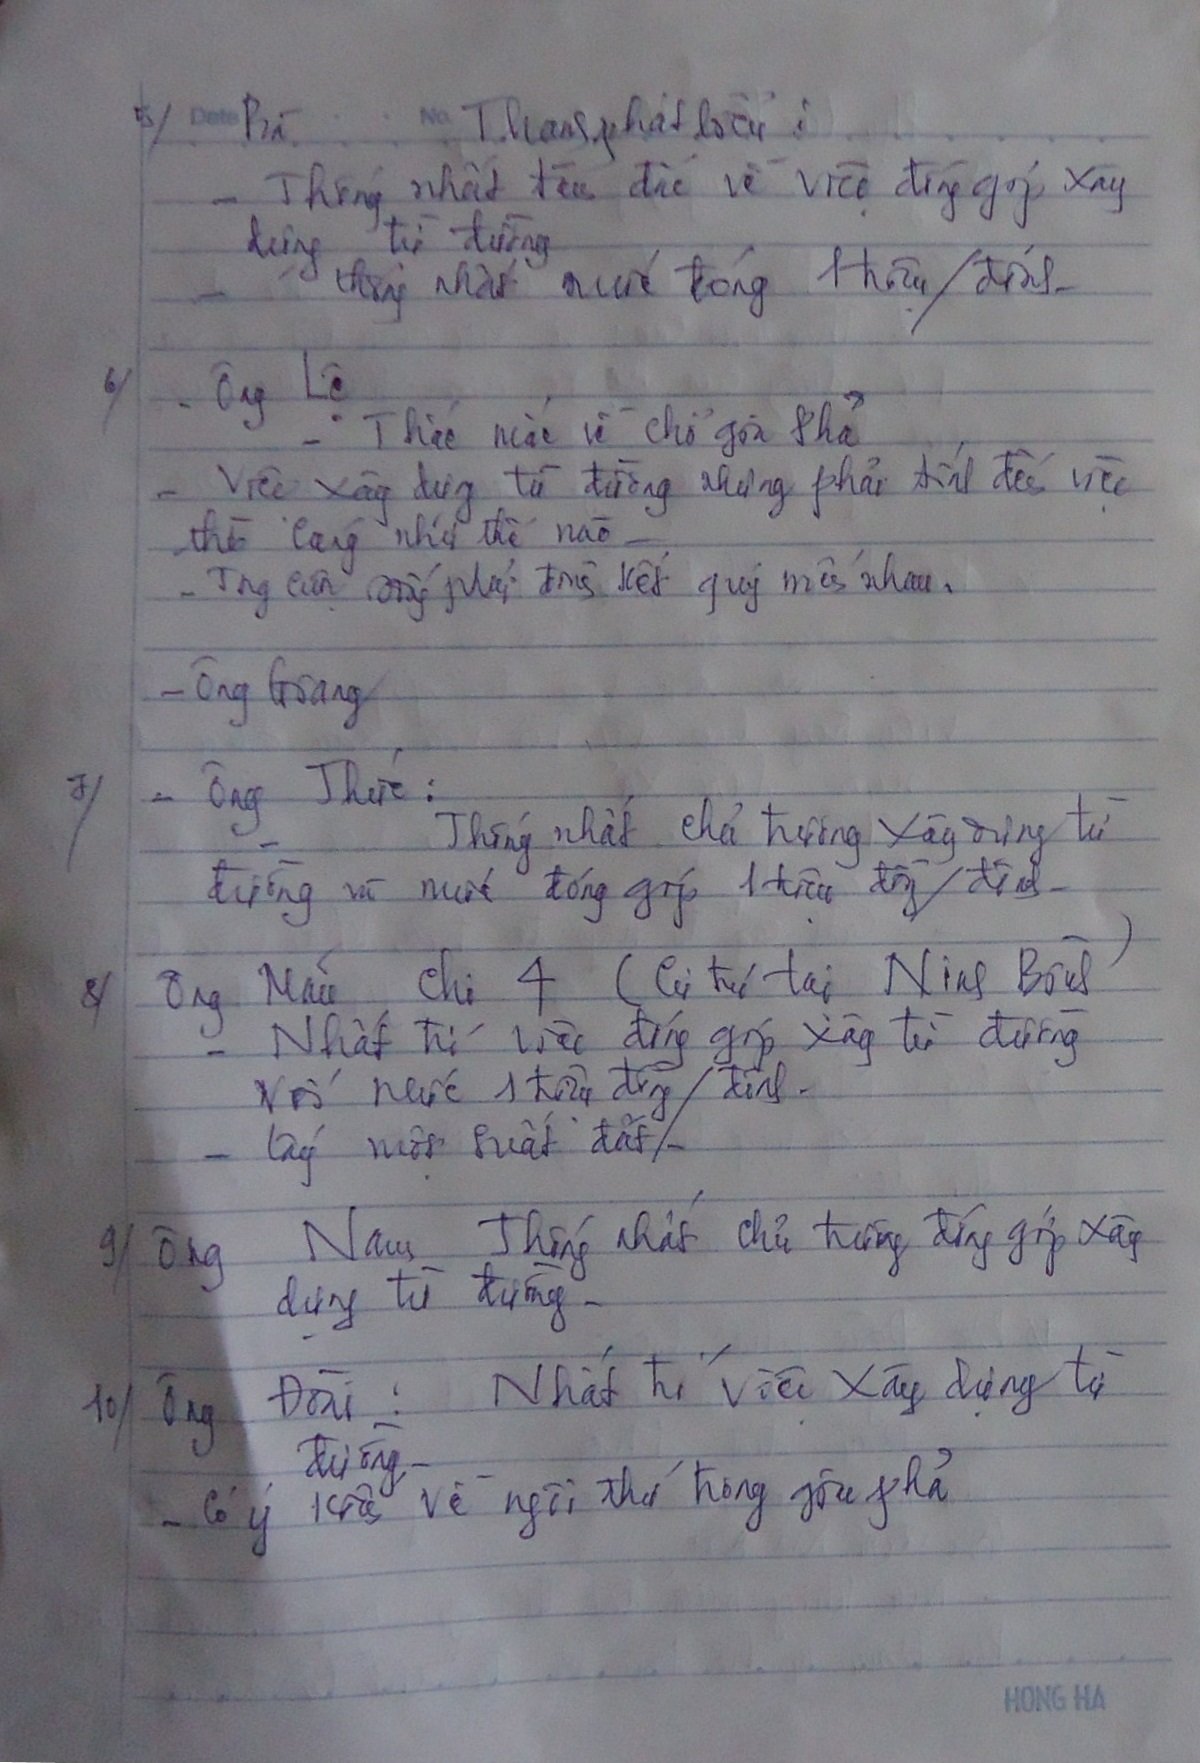 5/ Date Bà No. Thang phát biểu :
- Thống nhất việc đóng góp xây
dựng từ đường
- thống nhất mức đóng 1 triệu/đinh-
6/ - Ông Lệ
- Thắc mắc về chỗ gia phả
- Việc xây dựng từ đường nhưng phải tính đến việc
thờ cúng như thế nào -
- phải đoàn kết quý mến nhau.
- Ông Giang
7/ - Ông Thức :
- Thống nhất chủ trương xây dựng từ
đường và mức đóng góp 1 triệu đồng/đinh-
8/ Ông Mẫu chi 4 (Cư trú tại Ninh Bình)
- Nhất trí việc đóng góp xây từ đường
với mức 1 triệu đồng/đinh-
- Lấy một suất đất/-
9/ Ông Nam Thống nhất chủ trương đóng góp xây
dựng từ đường-
10/ Ông Đoài : Nhất trí việc xây dựng từ
đường-
- Có ý kiến về ngôi thứ trong gia phả
HONG HA